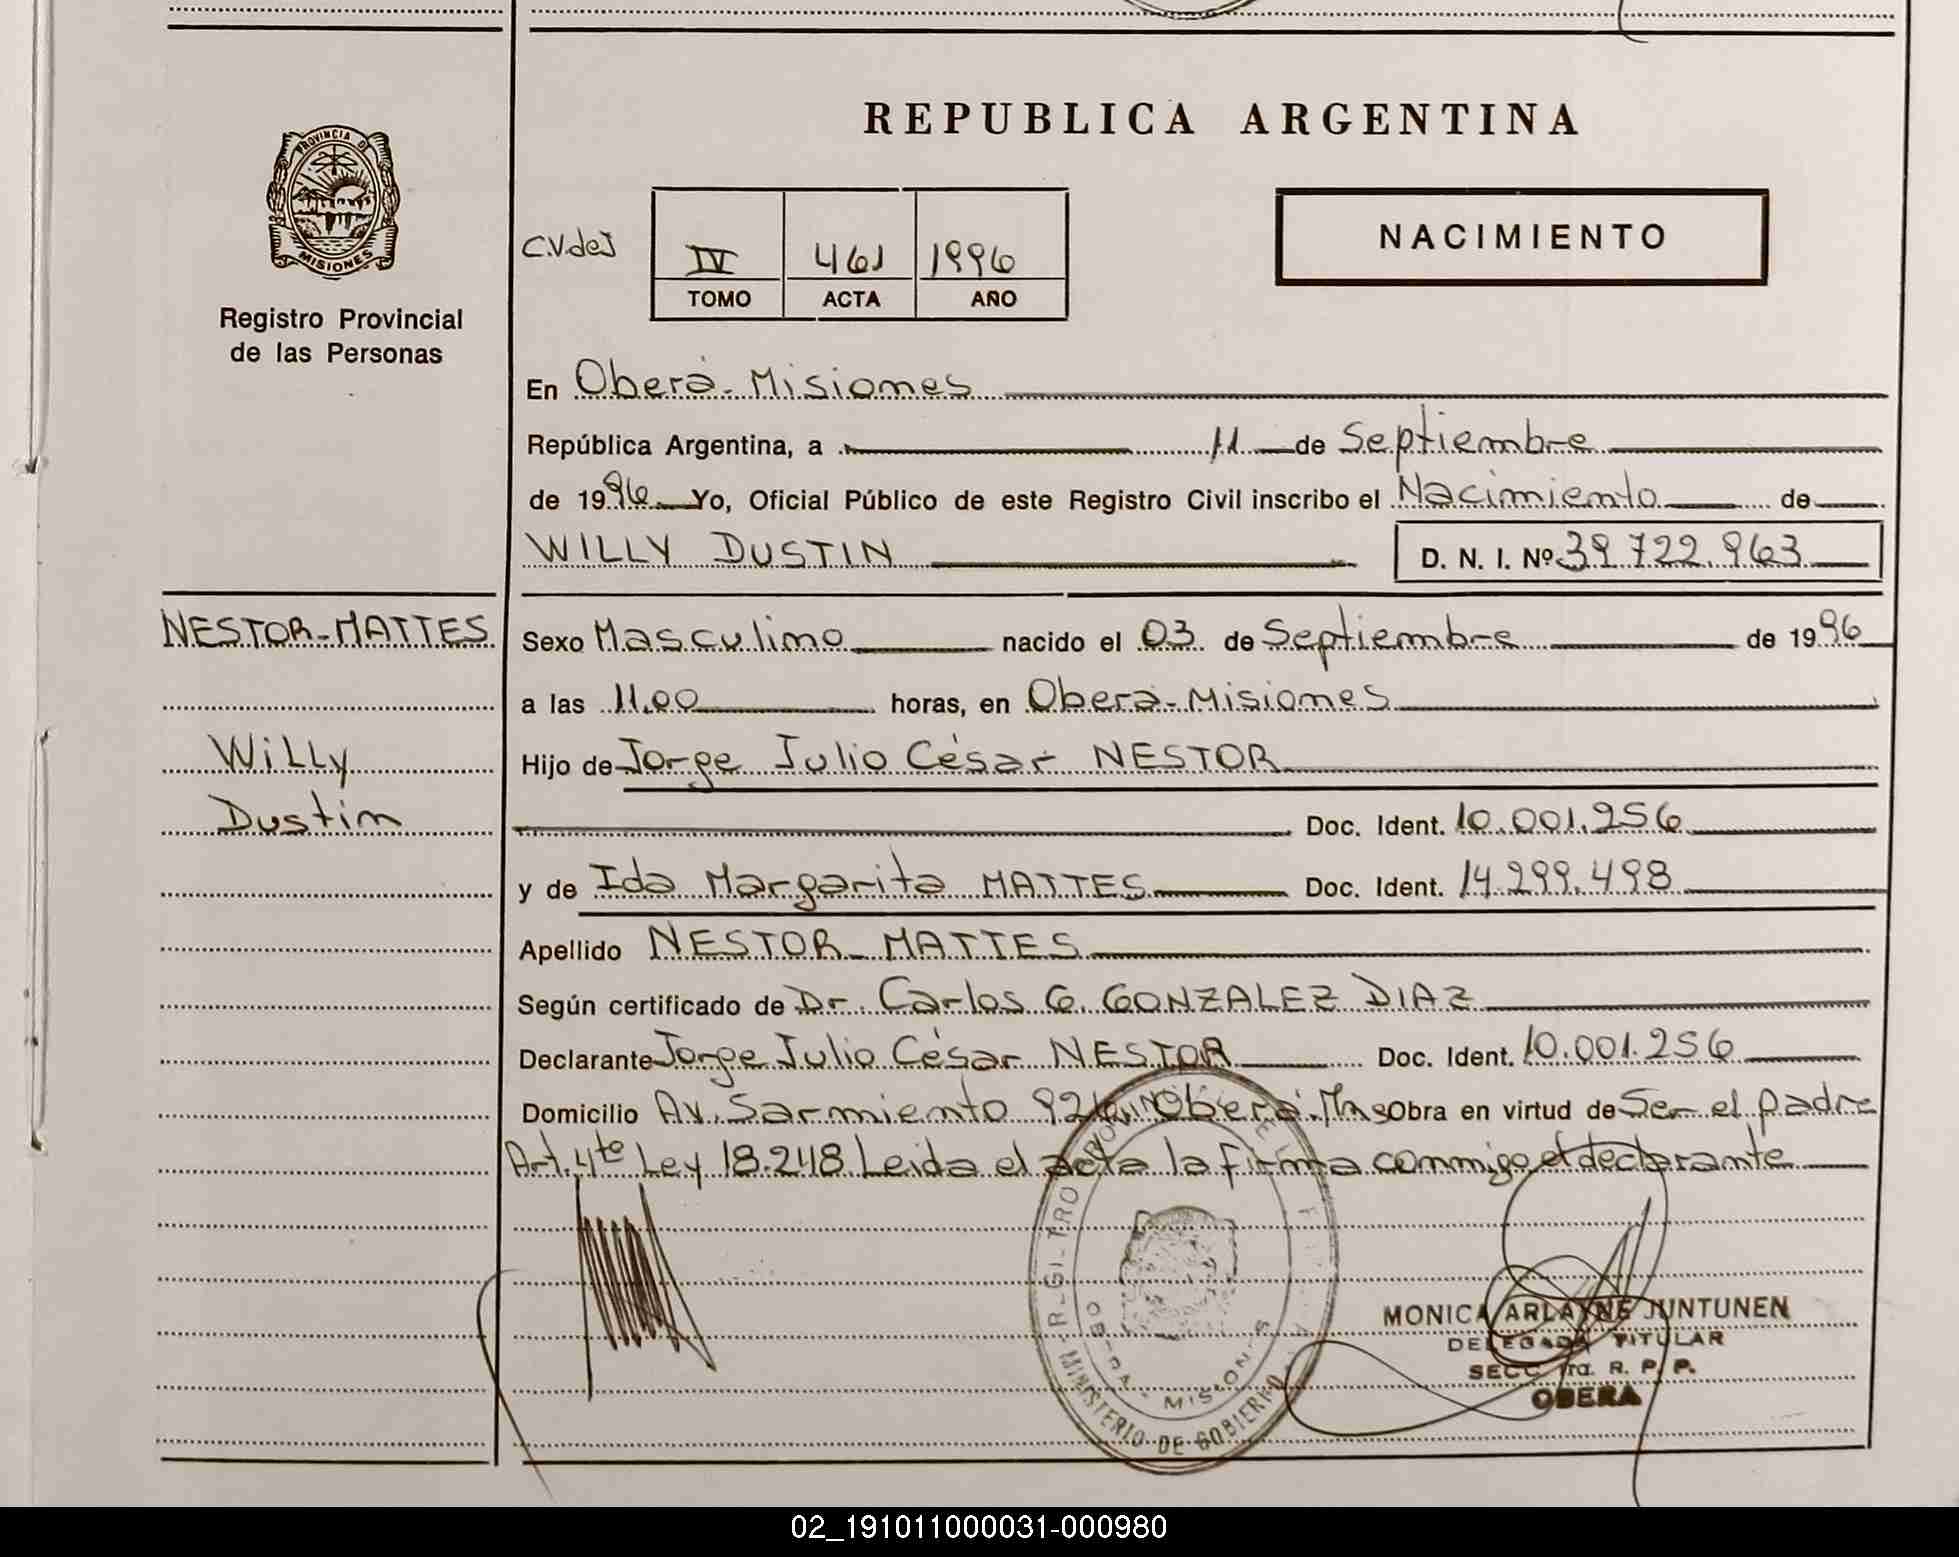 PROVINCIA DE
MISIONES
Registro Provincial
de las Personas
REPUBLICA ARGENTINA
NACIMIENTO
C.V.deJ
IV 461 1996
TOMO ACTA AÑO
En Oberá-Misiones
República Argentina, a 11 de Septiembre
de 1996 Yo, Oficial Público de este Registro Civil inscribo el Nacimiento de
WILLY DUSTIN D. N. I. Nº 39.722.963
NESTOR-MATTES
Willy
Dustin
Sexo Masculino nacido el 03 de Septiembre de 1996
a las 11.00 horas, en Oberá-Misiones
Hijo de Jorge Julio César NESTOR
Doc. Ident. 10.001.256
y de Ida Margarita MATTES Doc. Ident. 14.299.498
Apellido NESTOR-MATTES
Según certificado de Dr. Carlos G. GONZALEZ DIAZ
Declarante Jorge Julio César NESTOR Doc. Ident. 10.001.256
Domicilio Av. Sarmiento Oberá. Mns Obra en virtud de Ser el padre
Art. 4te Ley 18.248 Leida el acta la firma conmigo el declarante
MINISTERIO DE GOBIERNO
OBERA - MISIONES
MONICA ARLAYNE JUNTUNEN
DELEGADA TITULAR
SECC. 1ra. R. P. P.
OBERA
02_191011000031-000980